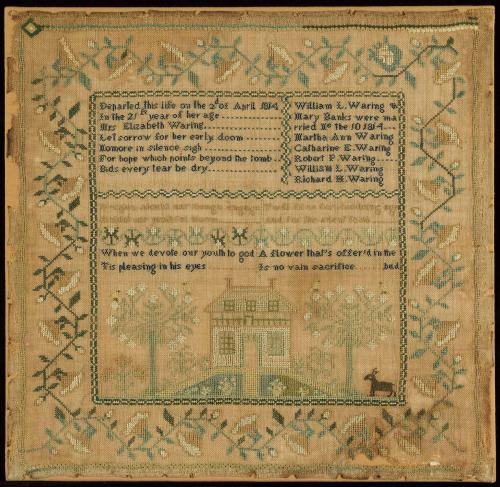 Departed this life on the 2d of April 1814
In the 21st year of her age
Mrs Elizabeth Waring
Let sorrow for her early doom
No more in silence sigh
For hope which points beyond the tomb
Bids every tear be dry
William L. Waring
Mary Banks were ma
rried No the 10 1814
Martha Ann Waring
Catharine E. Waring
Robert P. Waring
William L. Waring
Richard H. Waring
When we devote our youth to god
Tis pleasing in his eyes
A flower that's offer'd in the
Is no vain sacrifice bud